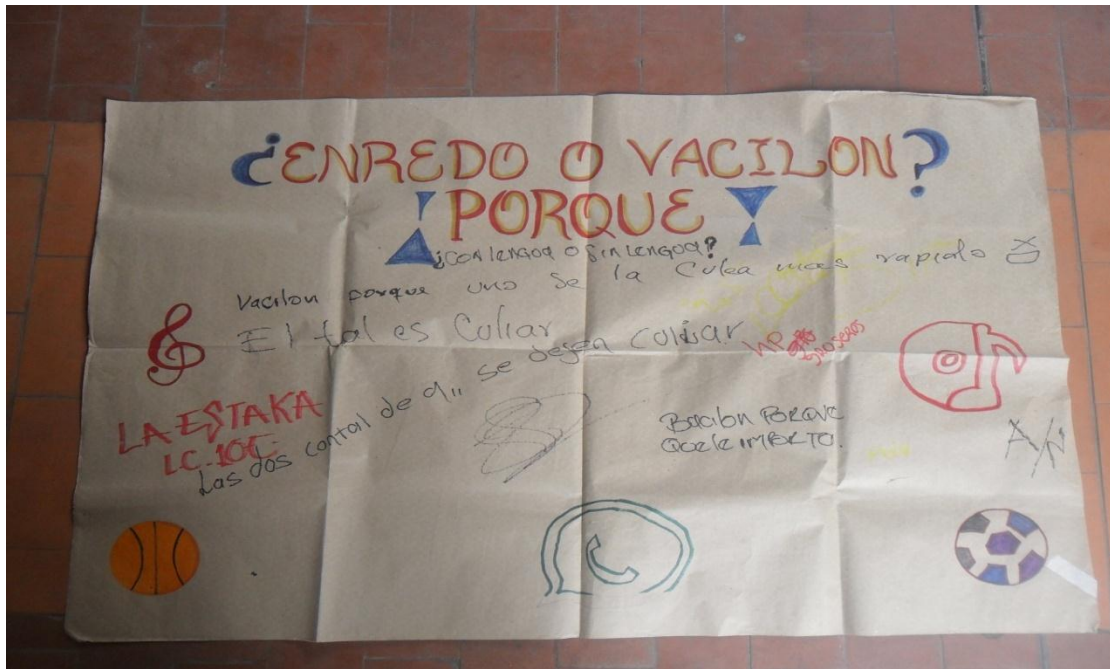 ¿ENREDO O VACILON?
¡PORQUE!
¿CON lENGOA O SIN LENGOA?
Vacilon porque uno se la Culea mas rapido
El tal es Culiar
HP
GROSEROS
Las dos contal de q,, se dejen culiar
LA ESTAKA
LC-10C
Bacilon PORQUE
QUELE IMPORTO.
A/N